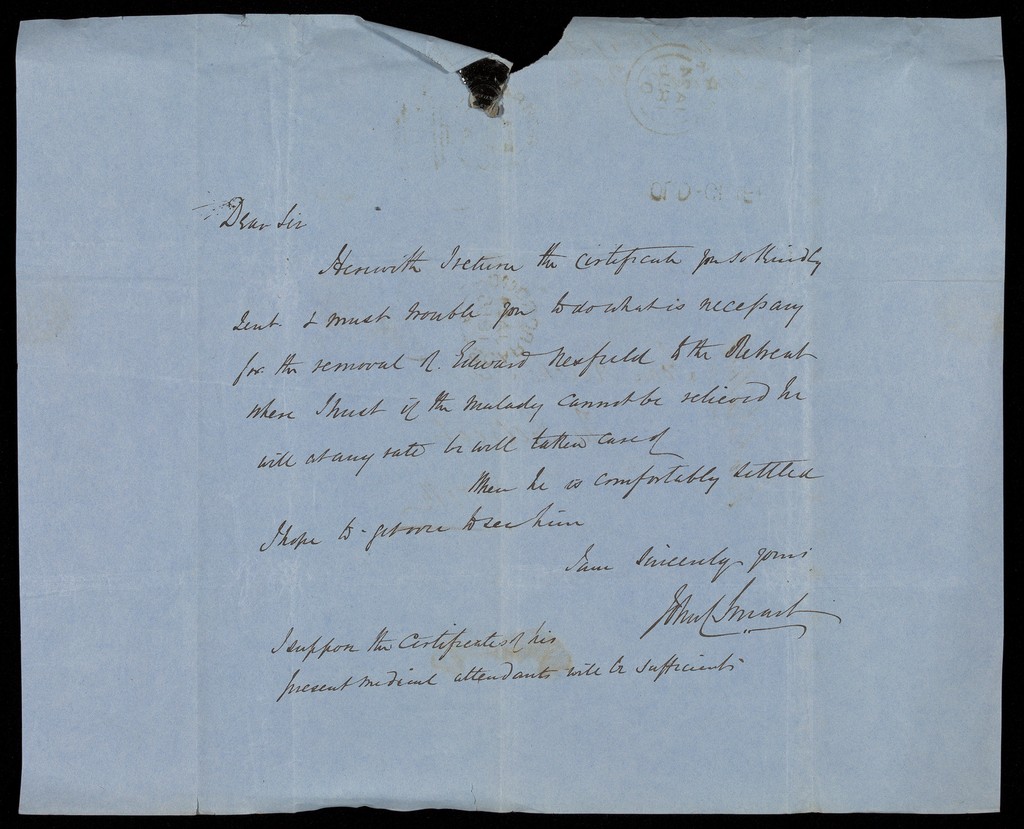 Dear Sir
Herewith I return the certificate you so kindly
lent & must trouble you to do what is necessary
for the removal of Edward Nesfield to the Retreat
where I trust if the malady cannot be relieved he
will at any rate be well taken care of
When he is comfortably settled
I hope to get over to see him
I am Sincerely yours
John Smart
I suppose the Certificates of his
present medical attendants will be sufficient